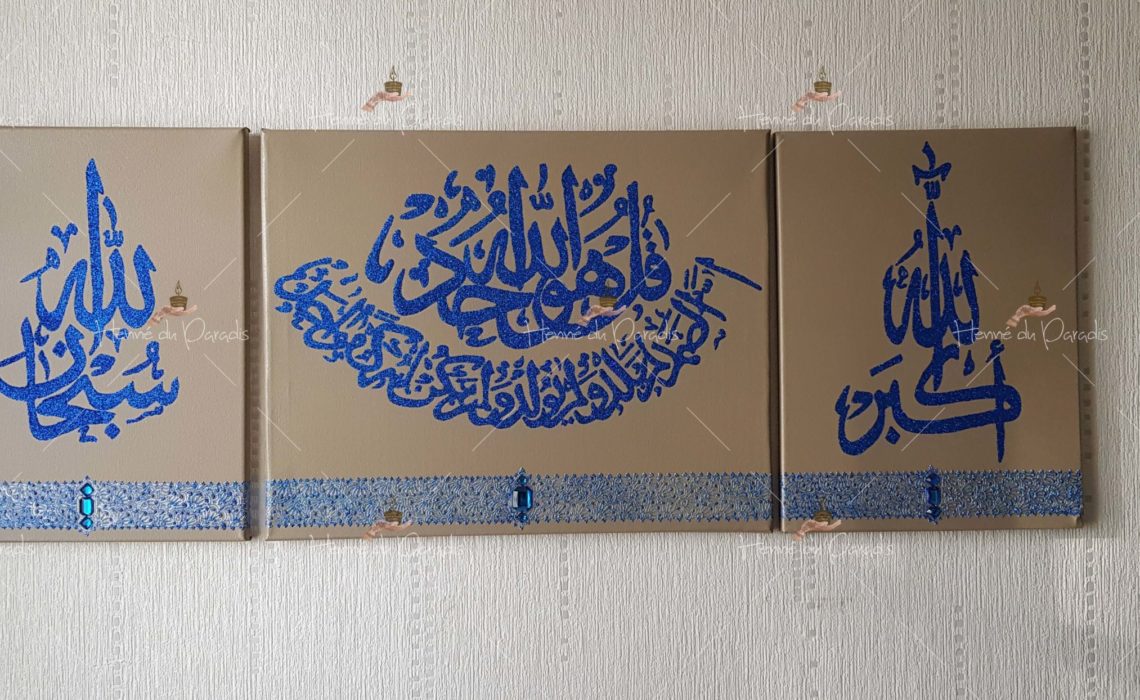 سُبْحَانَ الله
قُلْ هُوَ اللهُ أَحَدٌ
اللهُ الصَّمَدُ لَمْ يَلِدْ وَلَمْ يُولَدْ وَلَمْ يَكُنْ لَهُ كُفُوًا أَحَدٌ
اللهُ أَكْبَر
Henné du Paradis
Henné du Paradis
Henné du Paradis
Henné du Paradis
Henné du Paradis
Henné du Paradis
Henné du Paradis